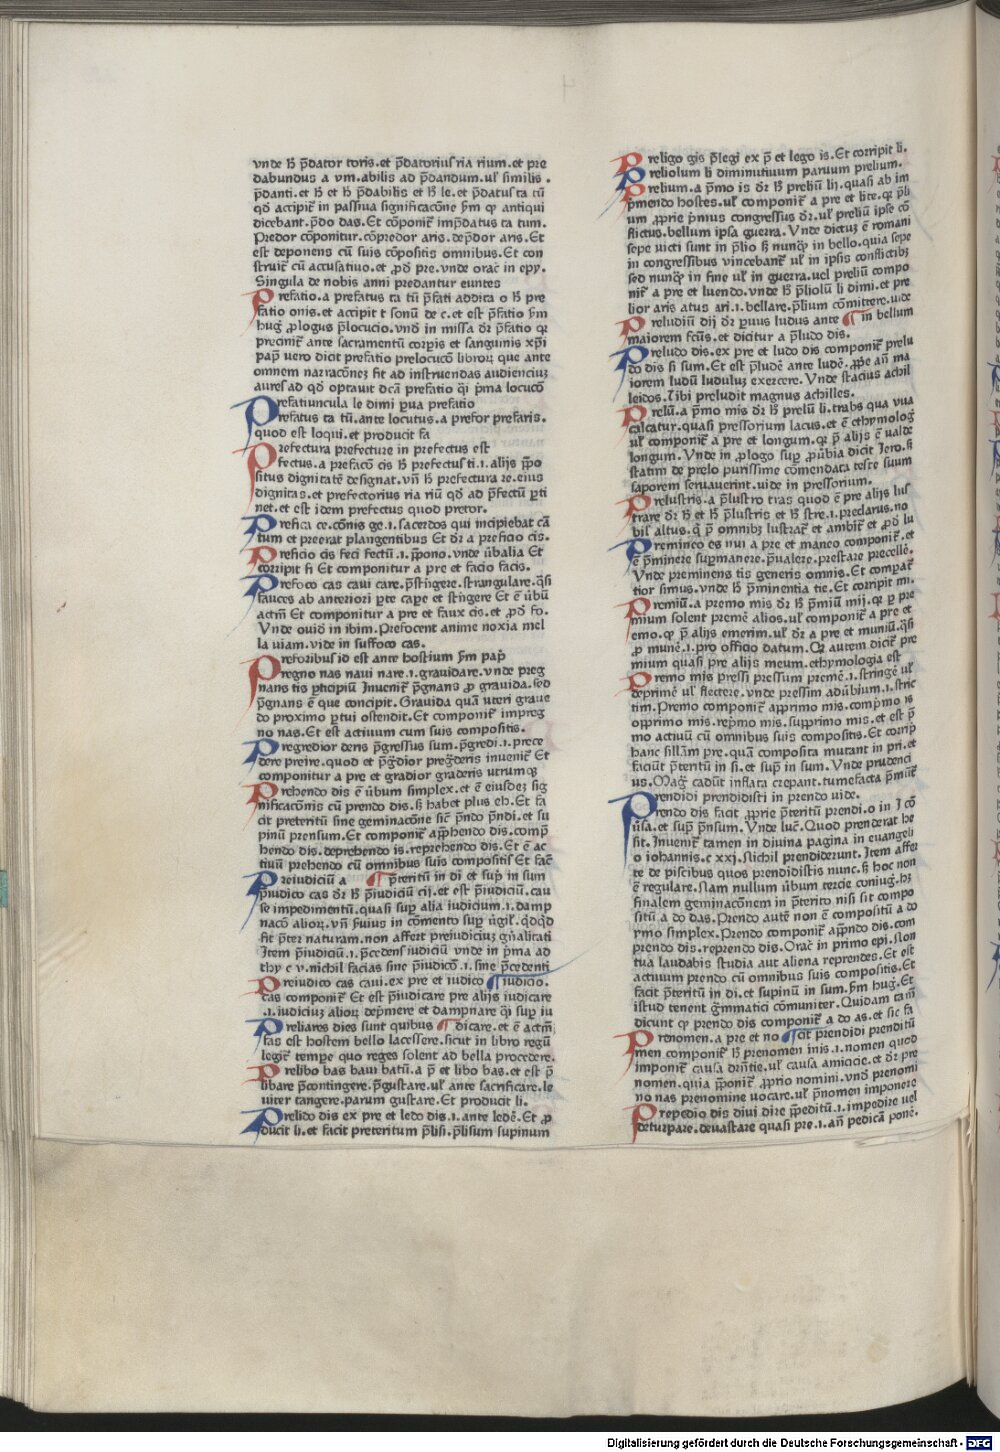 vnde hͦ p̄dator toris.et p̄datorius ria rium.et pre
dabundus a vm.abilis ad p̄dandum.ul̕ similis .
p̄danti.et hͨ et hͨ p̄dabilis et hͦ le.et p̄datus ta tū
qđ accipit̄ in passiua significacōne ẜm ꝙ antiqui
dicebant.p̄do das.Et cōponit̄ imp̄datus ta tum.
Predor cōponitur.cōpredor aris.dep̄dor aris.Et
est deponens cū suis cōpositis omnibus.Et con
struit̄ cū accusatiuo.et ꝓđ pre.vnde orac̄ in epy.
Singula de nobis anni predantur euntes
Prefatio.a prefatus ta tū p̄fati addita o hͨ pre
fatio onis.et accipit t sonū de c.et est p̄fatio ẜm
hug̕ ꝓlogus p̄locucio.vnđ in missa dr̄ p̄fatio qr
precinit̄ ante sacramentū corꝑis et sanguinis xp̄i
pap̄ uero dicit prefatio prelocucō libroꝝ que ante
omnem narracōnez fit ad instruendas audienciuz
aures ad qđ optauit dc̄a prefatio q̄i p̄ma locucō
Prefatiuncula le dimi ꝑua prefatio
Prefatus ta tū.ante locutus.a prefor prefaris.
quod est loqui.et producit fa
Prefectura prefecture in prefectus est
Prefectus.a prefacō cis hͦ prefectus ti.i.alijs p̄po
situs dignitatē designat.vn̄ hͨ prefectura re.eius
dignitas.et prefectorius ria riū qđ ad p̄fectū ꝑti
net.et est idem prefectus quod pretor.
Prefica ce.cōnis ge.i.sacerdos qui incipiebat cā
tum et preerat plangentibus Et dr̄ a preficio cis.
Preficio cis feci fectū.i.p̄pono.vnde ūbalia Et
corripit fi Et componitur a pre et facio facis.
Prefoco cas caui care.p̄stīgere.strangulare.q̄si
fauces ab anteriori ꝑte caꝑe et stīgere Et ē ūbū
actm̄ Et componitur a pre et faux cis.et ꝓđ fo.
Vnde ouiđ in ibim.Prefocent anime noxia mel
la uiam.vide in suffoco cas.
Preforibus id est ante hostium ẜm pap̄
Pregno nas naui nare.i.grauidare.vnde preg
nans tis ꝑticipiū Inuenit̄ p̄gnans ꝓ grauida.sed
p̄gnans ē que concipit.Grauida quā uteri graue
do proximo ꝑtui ostendit.Et componit̄ impreg
no nas.Et est actiuum cum suis compositis.
Pregredior deris p̄gressus sum.p̄gredi.i.prece
dere preire.quod et p̄gđior preḡderis inuenit̄ Et
componitur a pre et gradior graderis utrumqꝫ
Prehendo dis ē ūbum simplex.et ē eiusdez sig
nificacōnis cū prendo dis.sꝫ habet plus eh.Et fa
cit preteritū sine geminacōne sic̄ p̄ndo p̄ndi.et su
pinū prensum.Et componit̄ app̄hendo dis.comp̄
hendo dis.deprehendo is.reprehendo dis.Et ē ac
tiuū prehendo cū omnibus suis compositis Et fac̄
Preiudiciū a ¶ p̄teritū in di et sup̄ in sum
p̄iudico cas dr̄ hͦ p̄iudiciū cij.et est p̄iudiciū.cau
se impedimentū.quasi suꝑ alia iudicium.i.damp
nacō alioꝝ.vn̄ ẜuius in cōmento suꝑ ūgil̕.qđqđ
fit p̄ter naturam.non affert preiudiciuz gn̄alitati
Item p̄iudiciū.i.p̄cedens iudiciū vnde in p̄ma ad
thy c v.nichil facias sine p̄iudicō.i.sine p̄cedenti
Preiudico cas caui.ex pre et iudico ¶ iudicio.
cas componit̄ Et est p̄iudicare pre alijs iudicare
.i.iudiciuz alioꝝ dep̄mere et dampnare q̄i suꝑ iu
Preliares dies sunt quibus ¶ dicare.et ē actm̄
fas est hostem bello lacessere.sicut in libro regū
legit̄ tempe quo reges solent ad bella procedere.
Prelibo bas baui batū.a p̄ et libo bas.et est p̄
libare p̄contingere.p̄gustare.ul̕ ante sacrificare.le
uiter tangere.parum gustare.Et producit li.
Prelido dis ex pre et ledo dis.i.ante ledē.Et ꝓ
ducit li.et facit preteritum p̄lisi.p̄lisum supinum
Preligo gis p̄legi ex p̄ et lego is.Et corripit li.
Preliolum li diminutiuum paruum prelium.
Prelium.a p̄mo is dr̄ hͦ preliū lij.quasi ab im
p̄mendo hostes.ul̕ componit̄ a pre et lite.qr p̄li
um ꝓprie p̄mius congressus dr̄.ul̕ preliū ipse cō
flictus.bellum ipsa guerra.Vnde dictuz ē romani
sepe uicti sunt in p̄lio sꝫ nunqꝫ in bello.quia sepe
in congressibus vincebant̄ ul̕ in ipsis conflictibꝫ
sed nunqꝫ in fine ul̕ in guerra.uel preliū compo
nit̄ a pre et luendo.vnde hͦ p̄liolū li dimi.et pre
lior aris atus ari.i.bellare.p̄lium cōmittere.uide
Preludiū dij dr̄ ꝑuus ludus ante ¶ in bellum
maiorem fcūs.et dicitur a p̄ludo dis.
Preludo dis.ex pre et ludo dis componit̄ prelu
do dis si sum.Et est p̄ludē ante ludē.ꝓpe an̄ ma
iorem ludū luduluz exercere.Vnde stacius achil
leidos.Tibi preludit magnus achilles.
Prelū.a p̄mo mis dr̄ hͦ prelū li.trabs qua vua
calcatur.quasi pressorium lacus.et ē ethymolog̕
ul̕ componit̄ a pre et longum.qr p̄ alijs ē ualde
longum.Vnde in ꝓlogo suꝑ ꝓūbia dicit Iero.sꝫ
statim de prelo purissime cōmendata teste suum
saporem seruauerint.uide in pressorium.
Prelustris.a p̄lustro tras quod ē pre alijs lus
trare dr̄ hͨ et hͨ p̄lustris et hͦ stre.i.preclarus.no
bil̕ altus.q̄ p̄ omnibꝫ lustrat̄ et ambit̄ et ꝓđ lu
Premineo es nui a pre et maneo componit̄.et
ē p̄minere suꝑmanere.p̄ualere.prestare precellē.
Vnde preminens tis generis omnis.Et compat̄
tior simus.vnde hͨ p̄minentia tie.Et corripit mi.
Premiū.a premo mis dr̄ hͦ p̄miū mij.qr ꝑ pre
mium solent premē alios.ul̕ componit̄ a pre et
emo.qr p̄ alijs emerim.ul̕ dr̄ a pre et muniū.q̄si
ꝓ munē.i.pro officio datum.Qr autem dicit̄ pre
mium quasi pre alijs meum.ethymologia est
Premo mis pressi pressum premē.i.stringē ul̕
deprimē ul̕ flectere.vnde pressim adūbium.i.stric
tim.Premo componit̄ apprimo mis.comp̄mo is
opprimo mis.rep̄mo mis.supprimo mis.et est p̄
mo actiuū cū omnibus suis compositis.Et corrip̄
hanc sillam̄ pre.quā composita mutant in pri.et
faciūt p̄teritū in si.et sup̄ in sum.Vnde prudenci
us.Mag̕ cadūt inflata crepant.tumefacta p̄mūt̄
Prendidi prendidisti in prendo uide.
Prendo dis facit ꝓprie p̄teritū prendi.o in I cō
ūsa.et sup̄ p̄nsum.Vnde luc̄.Quod prenderat he
sit.Inuenit̄ tamen in diuina pagina in euangeli
o iohannis.c xxj.Nichil prendiderunt.Item affer
te de piscibus quos prendidistis nunc.sꝫ hoc non
ē regulare.Nam nullum ūbum tercie coniug̕.hꝫ
finalem geminacōnem in p̄terito nisi sit compo
sitū a do das.Prendo autē non ē compositū a do
ymo simplex.Prendo componit̄ app̄ndo dis.com
prendo dis.reprendo dis.Orac̄ in primo epi.Non
tua laudabis studia aut aliena reprendes.Et est
actiuum prendo cū omnibus suis compositis.Et
facit p̄teritū in di.et supinū in sum.ẜm hug̕.Et
istud tenent gr̄mmatici cōmuniter.Quidam tam̄
dicunt ꝙ prendo dis componit̄ a do as.et sic fa
Prenomen.a pre et no ¶ cit prendidi prenditū
men componit̄ hͦ prenomen inis.i.nomen quod
imponit̄ causa drn̄tie.ul̕ causa amicicie.et dr̄ pre
nomen.quia p̄ponit̄ ꝓprio nomini.vnđ prenomi
no nas prenomine uocare.ul̕ p̄nomen imponere
Prepedio dis diui dire p̄peditū.i.impedire uel
deturpare.deuastare quasi pre.i.an̄ pedica ponē.
Digitalisierung gefördert durch die Deutsche Forschungsgemeinschaft - DFG